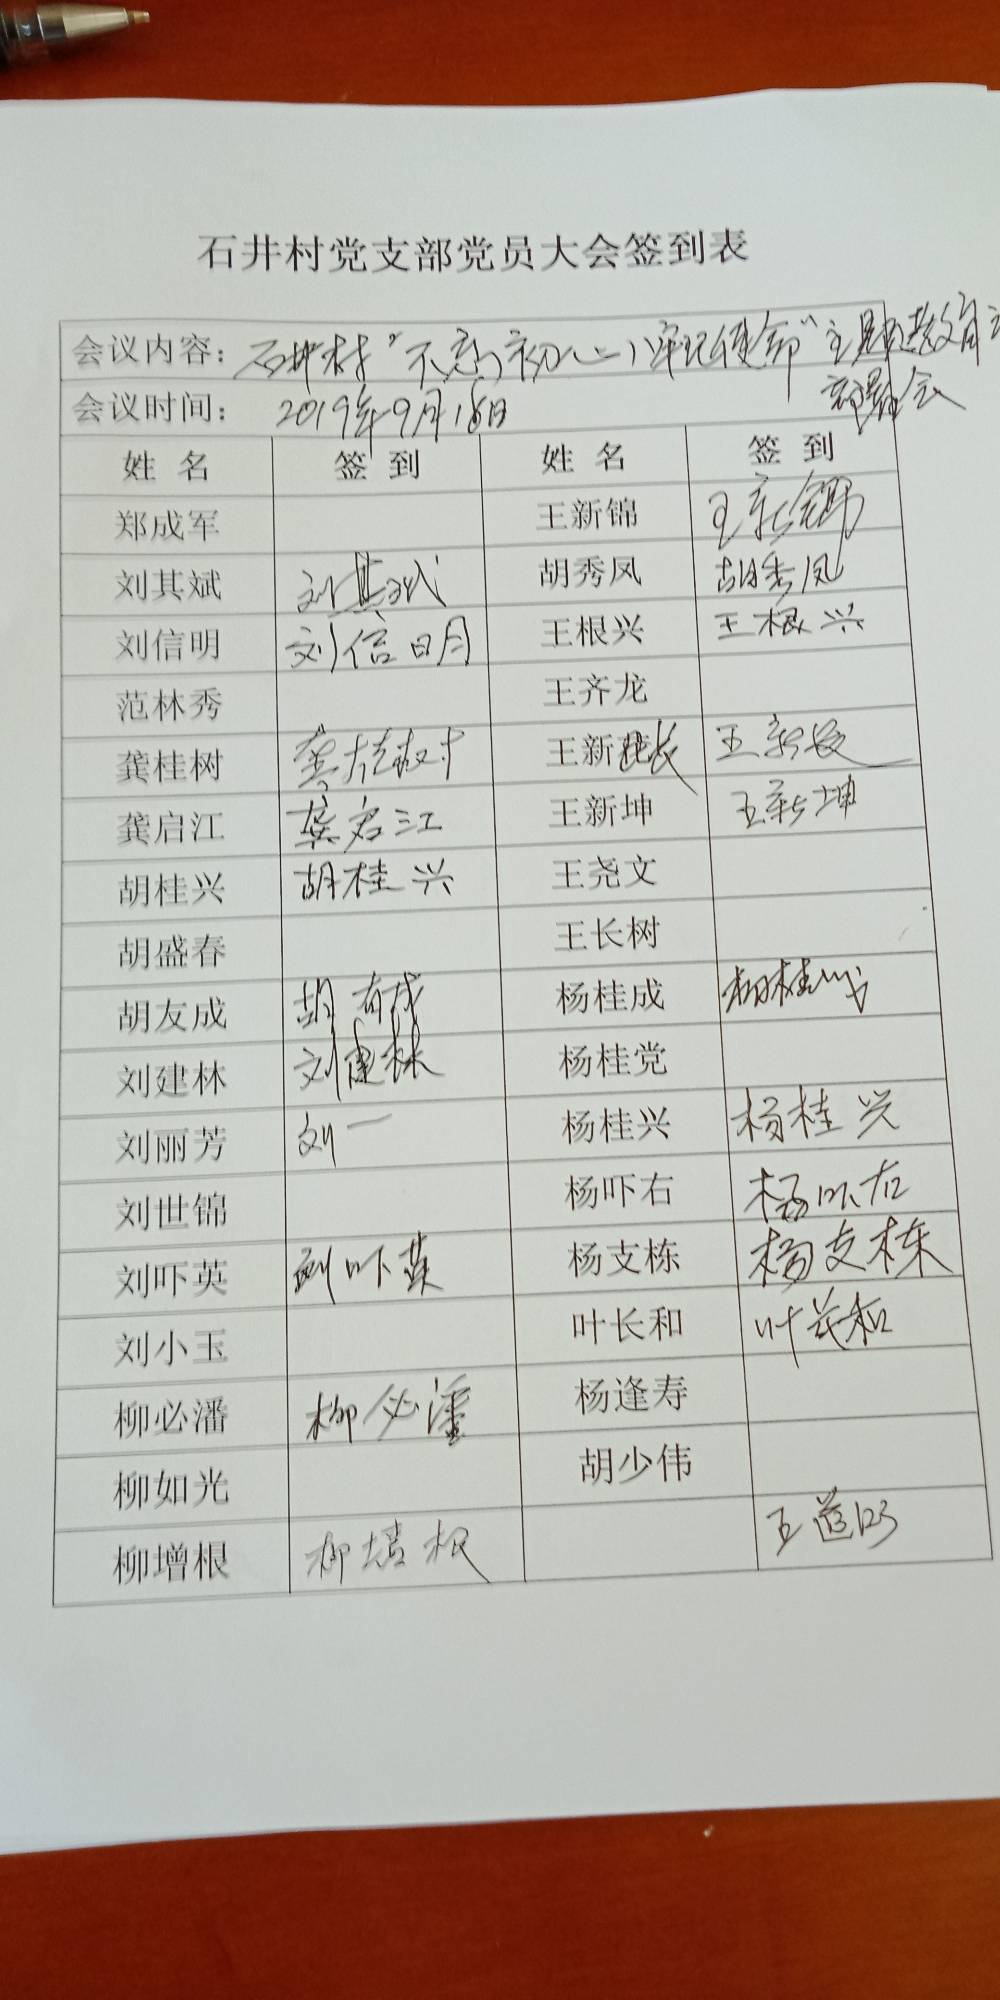 石井村党支部党员大会签到表
会议内容：石井村“不忘初心、牢记使命”主题教育
部署会
会议时间：2019年9月16日
姓 名 签 到 姓 名 签 到
郑成军 王新锦 王新锦
刘其斌 刘其斌 胡秀凤 胡秀凤
刘信明 刘信明 王根兴 王根兴
范林秀 王齐龙
龚桂树 龚桂树 王新长 王新长
龚启江 龚启江 王新坤 王新坤
胡桂兴 胡桂兴 王尧文
胡盛春 王长树
胡友成 胡友成 杨桂成 杨桂成
刘建林 刘建林 杨桂党
刘丽芳 刘一 杨桂兴 杨桂兴
刘世锦 杨吓右 杨吓右
刘吓英 刘吓英 杨支栋 杨支栋
刘小玉 叶长和 叶长和
柳必潘 柳必潘 杨逢寿
柳如光 胡少伟
柳增根 柳增根 王道